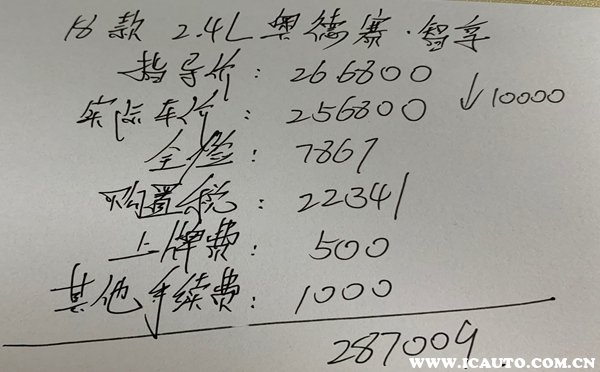 18款 2.4L 奥德赛·智享
指导价: 266800
实际车价: 256800 ↓10000
全险: 7867
购置税: 22341
上牌费: 500
其他手续费: 1000
287009
WWW.ICAUTO.COM.CN